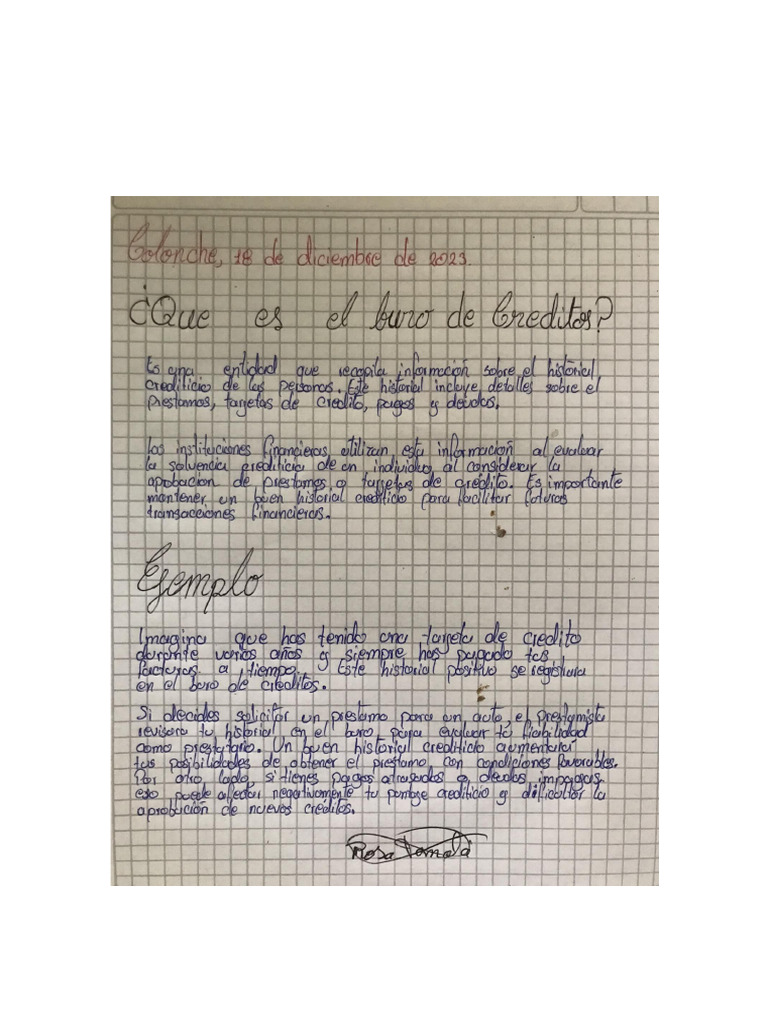 Colonche, 18 de diciembre de 2023.
¿Que es el buro de Creditos?
Es una entidad que recopila información sobre el historial
crediticio de las personas. Este historial incluye detalles sobre el
prestamos, tarjetas de credito, pagos y deudas.
Las instituciones financieras utilizan esta información al evaluar
la solvencia crediticia de un individuo al considerar la
aprobacion de prestamos o tarjetas de crédito. Es importante
mantener un buen historial crediticio para facilitar futuras
transacciones financieras.
Ejemplo
Imagina que has tenido una tarjeta de credito
durante varios años y siempre has pagado tus
facturas a tiempo. Este historial positivo se registrara
en el buro de creditos.
Si decides solicitar un prestamo para un auto, el prestamista
revisara tu historial en el buro para evaluar tu fiabilidad
como prestatario. Un buen historial crediticio aumentará
tus posibilidades de obtener el prestamo con condiciones favorables.
Por otro lado, si tienes pagos atrasados o deudas impagas,
eso puede afectar negativamente tu puntaje crediticio y dificultar la
aprobación de nuevos creditos.
Rosa Tomalá